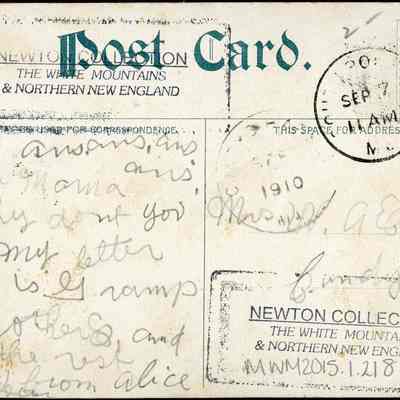 Post Card.
NEWTON COLLECTION
THE WHITE MOUNTAINS
& NORTHERN NEW ENGLAND
SEP 7
11 AM
M
FOR CORRESPONDENCE
THIS SPACE FOR ADDRES
1910
ans, ans, ans
ans
Mama
dont you
my letter
is Gramp
others, and
the rest
from Alice
Mrs. A E
NEWTON COLLEC
THE WHITE MOUNTA
& NORTHERN NEW ENG
MWM2015.1.218